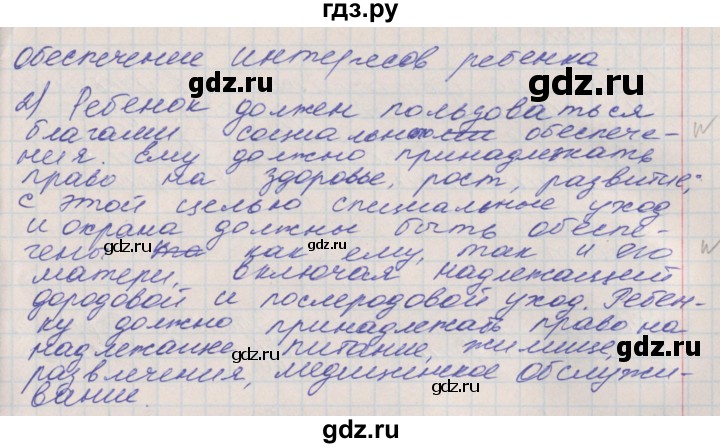 гдз.ру
обеспечение интересов ребенка.
gdz.ru gdz.ru
2) Ребенок должен пользоваться
благами социальности обеспече-
ния. Ему должно принадлежать
право на здоровье, рост, развитие;
gdz.ru
с этой целью специальные уход
и охрана должны быть обеспе-
gdz.ru gdz.ru
чены как ему, так и его
матери, включая надлежащий
дородовой и послеродовой уход. Ребен-
ку должно принадлежать право на
надлежание, питание, жилище,
gdz.ru gdz.ru
развлечения, медицинское обслужи-
gdz.ru
вание.
gdz.ru